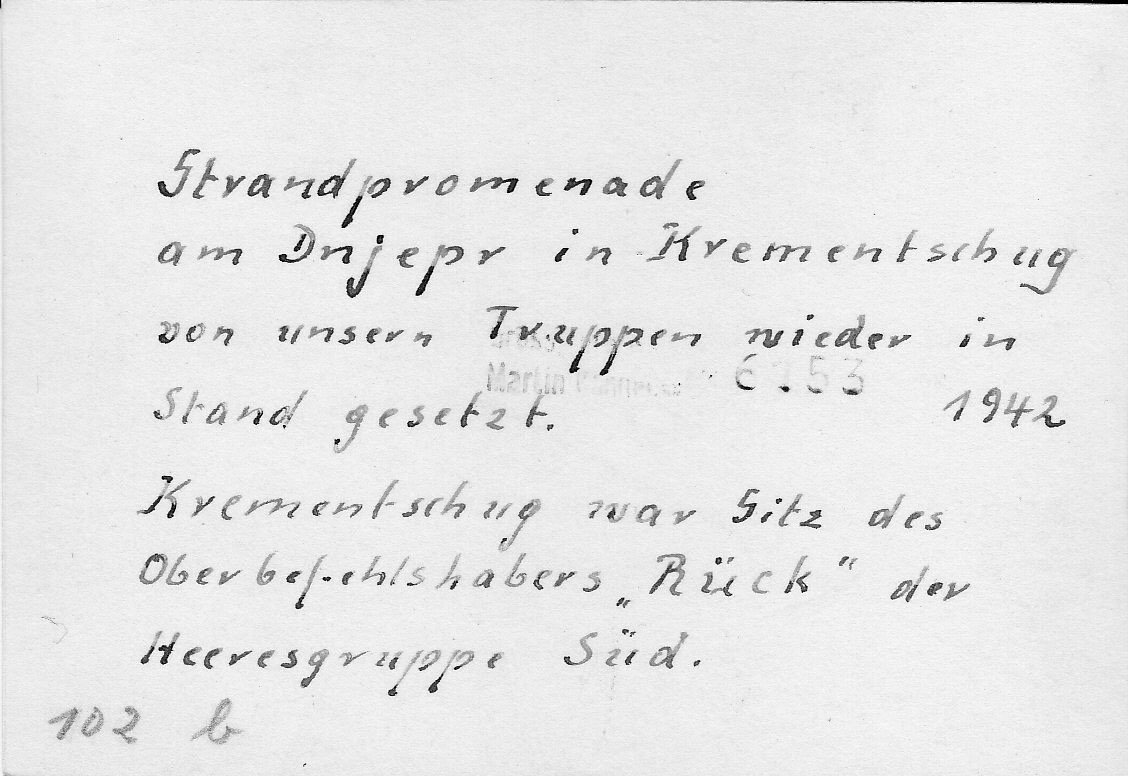 Strandpromenade
am Dnjepr in Krementschug
von unsern Truppen wieder in
Martin
6153
Stand gesetzt. 1942
Krementschug war Sitz des
Oberbefehlshabers „Rück" der
Heeresgruppe Süd.
102 b